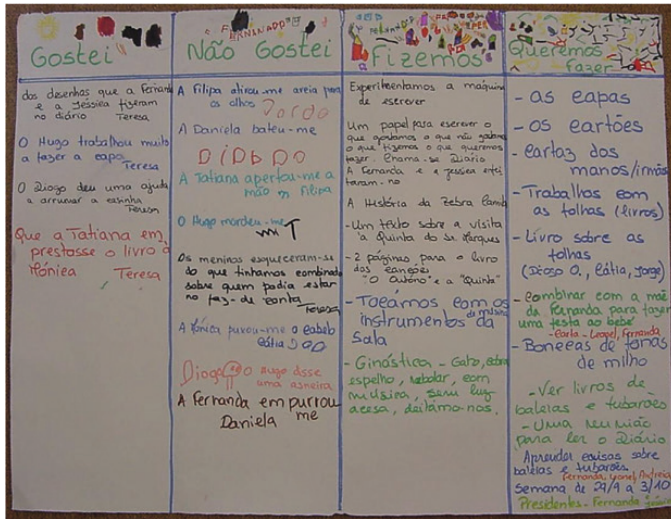 Gostei
dos desenhos que a Fernanda
e a Jessica fizeram
no diário Teresa
O Hugo trabalhou muito
a fazer a capa
Teresa
O Diogo deu uma ajuda
a arrumar a casinha
Teresa
Que a Tatiana em
prestasse o livro à
Mónica Teresa
FERNANDA
Não Gostei
A Filipa atirou-me areia para
os olhos
A Daniela bateu-me
A Tatiana apertou-me a
mão Filipa
O Hugo mordeu-me
Os meninos esqueceram-se
do que tinhamos combinado
sobre quem podia estar
no faz-de conta
Teresa
A Mónica puxou-me o cabelo
Cátia
Diogo O Hugo disse
uma asneira
A Fernanda empurrou
Daniela me
Fizemos
Experimentamos a maquina
de escrever
Um papel para escrever o
que gostamos o que não gostamos
o que fizemos o que queremos
fazer. Chama-se Diário
A Fernanda e a Jessica enfei
taram-no
A História da Zebra
-Um texto sobre a visita
à Quinta do Sr. Marques
-2 páginas para o livro
das canções
"O Outono" e a "Quinta"
-Tocámos com os
instrumentos de música da
sala
-Ginástica - Gato, cobra
espelho, rebolar, com
musica, sem luz
acesa, deitámo-nos.
Queremos
fazer
-as capas
-os cartões
-cartaz dos
manos/irmãos
-Trabalhos com
as folhas (livros)
-Livro sobre as
folhas
(Diogo O., Cátia, Jorge)
-combinar com a mãe
da Fernanda para fazer
uma festa ao bebé
-Carla - Leonel, Fernanda
-Bonecas de folhas
de milho
-Ver livros de
baleias e tubarões
-Uma reunião
para ler o Diário
Aprender coisas sobre
baleias e tubarões
Fernanda, Leonel, Andreia
Semana de 29/9 a 3/10
Presidentes - Fernanda